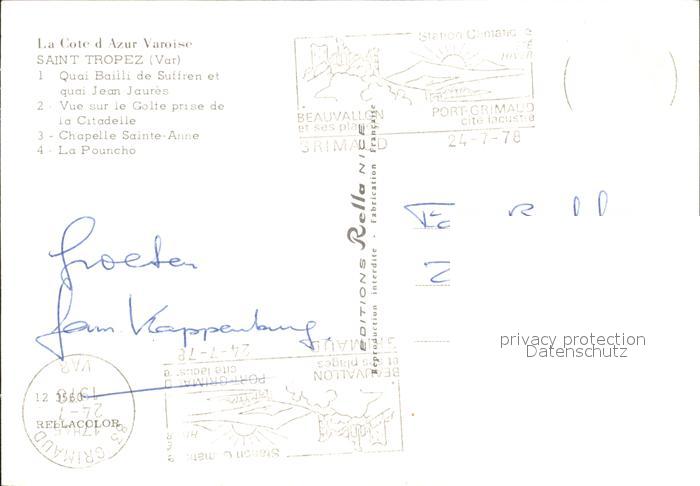 La Cote d Azur Varoise
SAINT TROPEZ (Var)
1 Quai Bailli de Suffren et
quai Jean Jaurès
2 - Vue sur le Golfe prise de
la Citadelle
3 - Chapelle Sainte-Anne
4 - La Pouncho
Station Climatique
BEAUVALLON
et ses plages
GRIMAUD
PORT-GRIMAUD
cité lacustre
24-7-78
EDITIONS Rella NICE
Reproduction interdite - Fabrication Française
Groeten
fam. Kappenburg.
privacy protection
Datenschutz
GRIMAUD
24-7-78
BEAUVALLON
et ses plages
PORT-GRIMAUD
cité lacus
Station Climati
12 0560
RELLACOLOR
83 GRIMAUD
17H45
24-7
1978
VAR